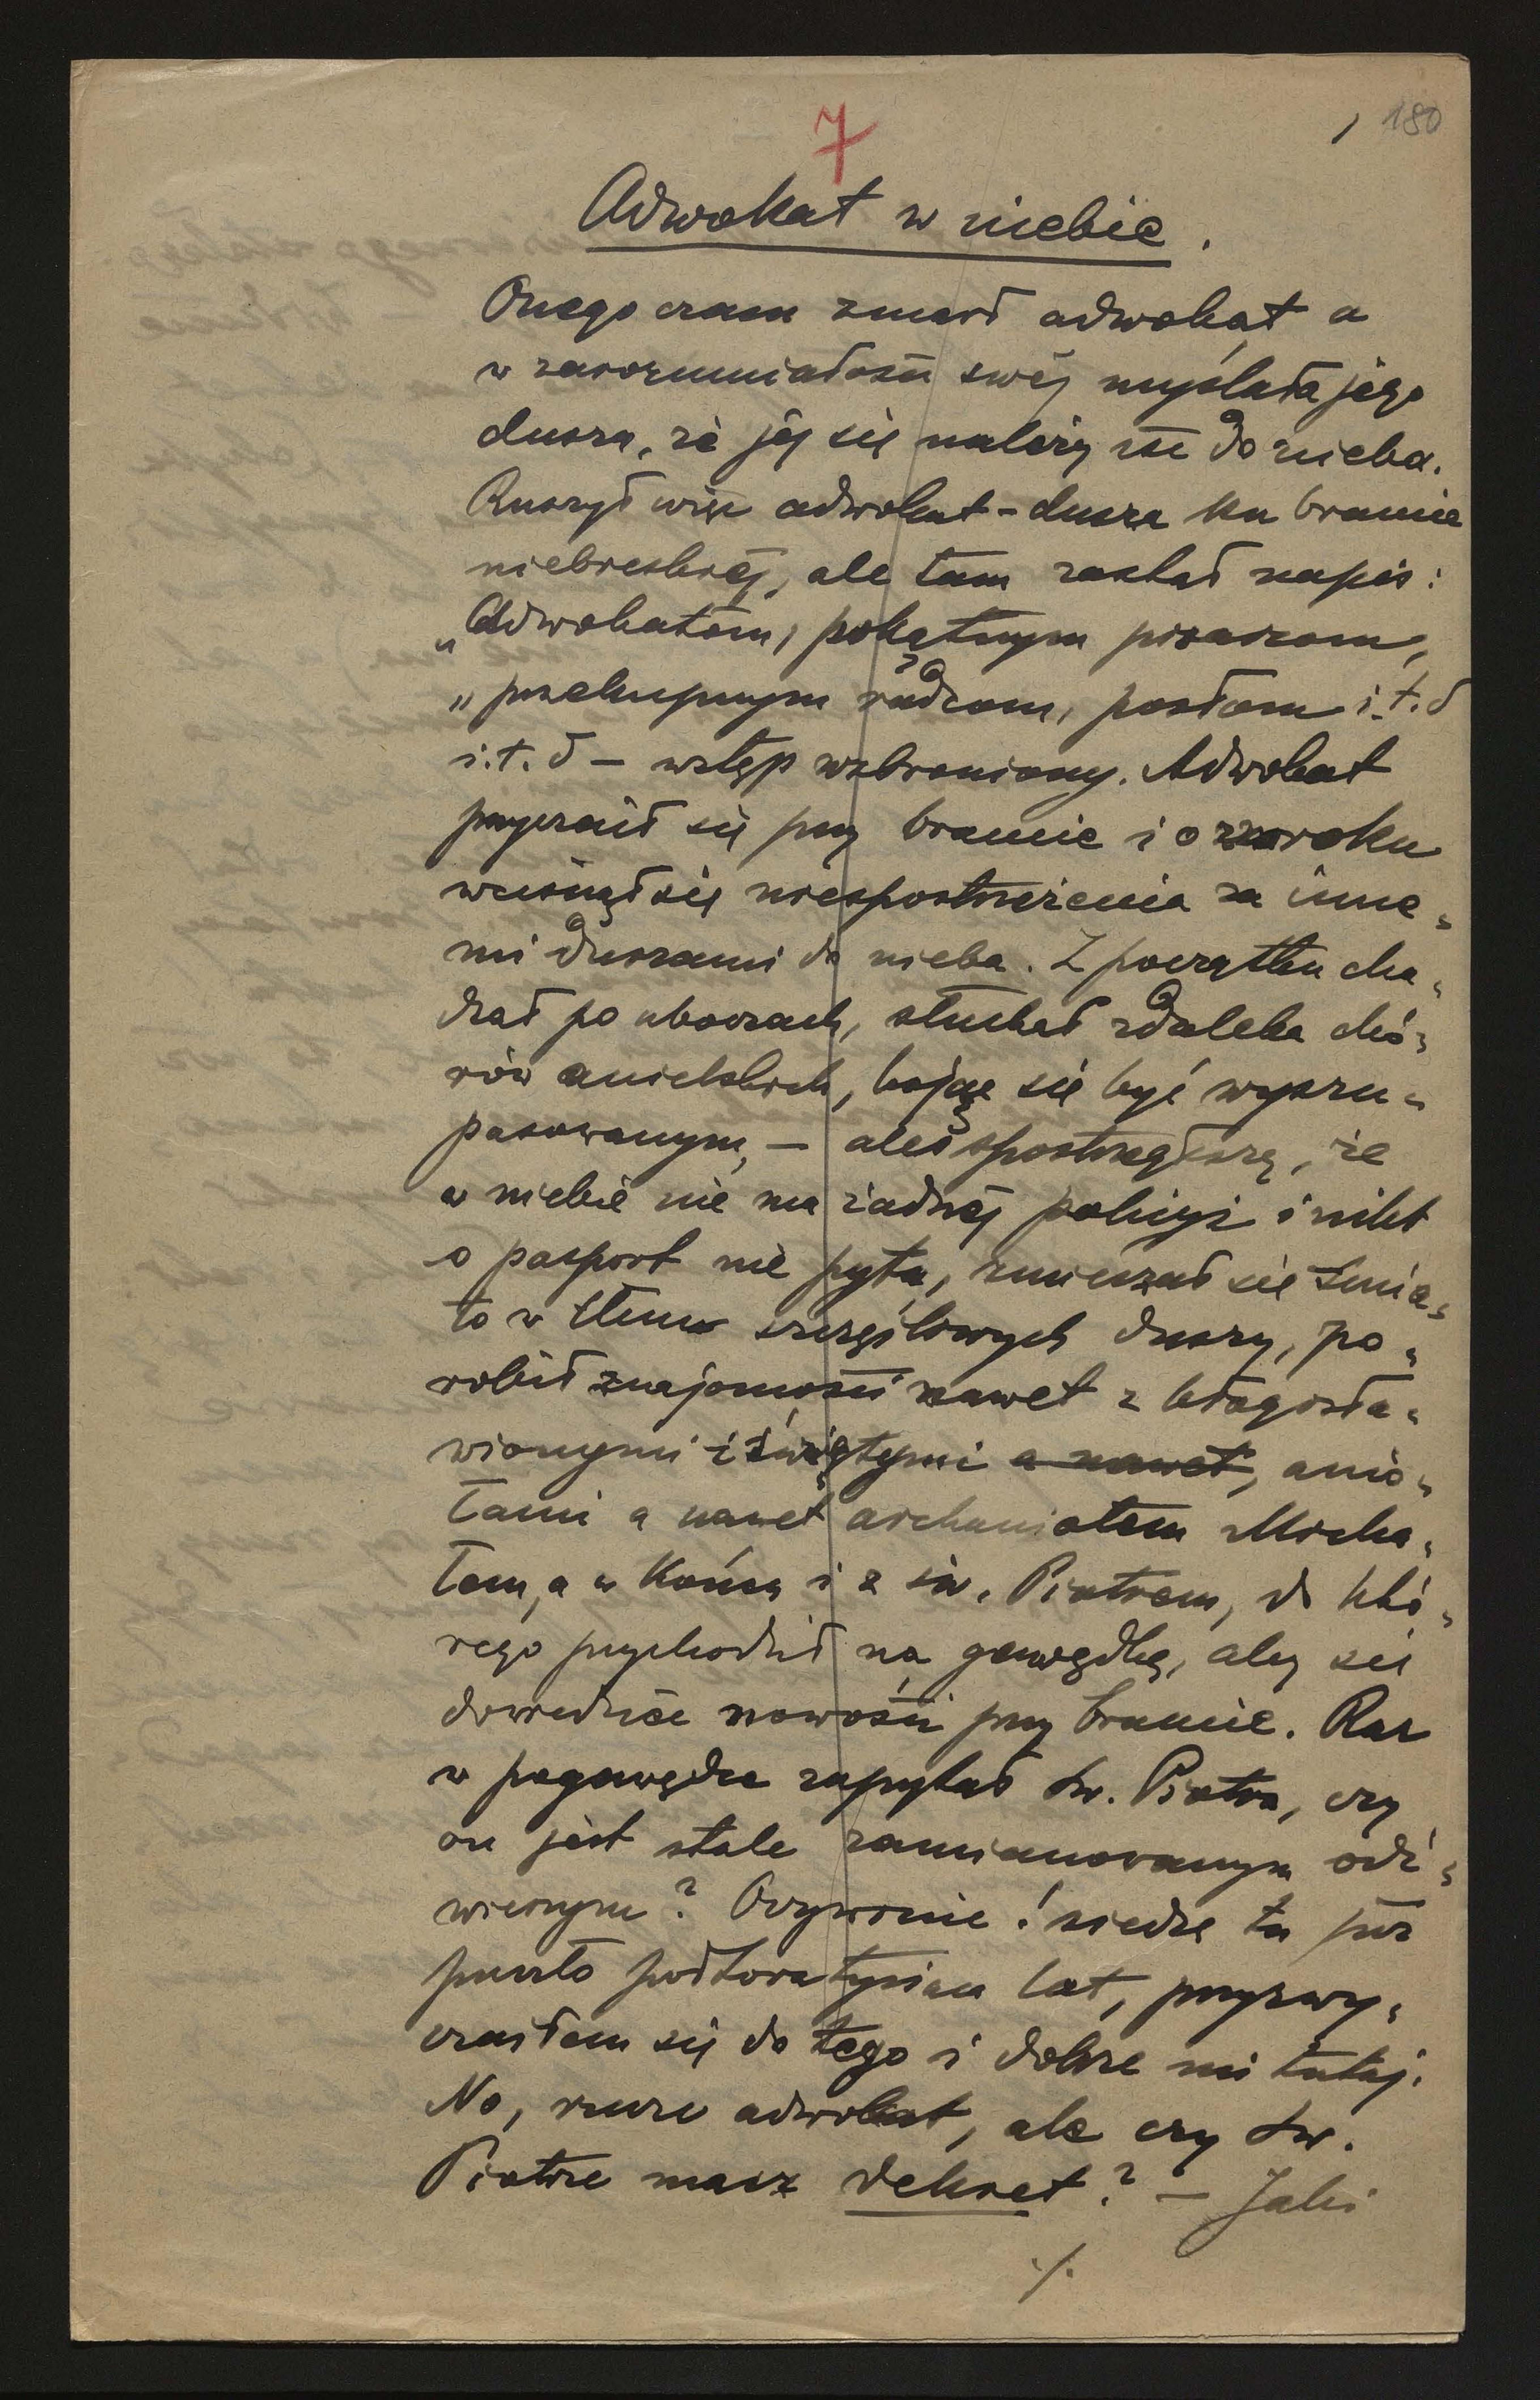 7
1 180
Adwokat w niebie.
Onego czasu zmarł adwokat, a
w zarozumiałości swéj myślała jego
dusza, że jéj się należy iść do nieba.
Ruszył więc adwokat-dusza ku bramie
niebieskiéj, ale tam zastał napis:
„Adwokatom, pokątnym pisarzom,
„przekupnym radcom, posłom i.t.d
i.t.d – wstęp wzbroniony. Adwokat
przyczaił się przy bramie i o zmroku
wcisnął się niespostrzeżenie za inne-
mi duszami do nieba. Z początku cho-
dzał po uboczach, słuchał zdaleka chó-
rów anielskich, bojąc się być wyszu-
pasowanym, – ale spostrzegłszy, że
w niebie nie ma żadnéj policyi i nikt
o paszport nie pyta, zmieszał się śmia-
ło w tłum szczęśliwych duszy, po-
robił znajomości nawet z błogosła-
wionymi i świętymi a nawet, anio-
łami a nawet archaniołem Micha-
łem, a w końcu i z św. Piotrem, do któ-
rego przychodził na gawędkę, aby się
dowiedzieć nowości przy bramie. Raz
w pogawędce zapytał św. Piotra, czy
on jest stale zamianowanym odź-
wiernym? Oczywiście! siedzę tu już
przeszło półtora tysiąca lat, przyzwy-
czaiłem się do tego i dobrze mi tutaj.
No, rzecze adwokat, ale czy św.
Piotrze masz dekret? – Jaki
./.